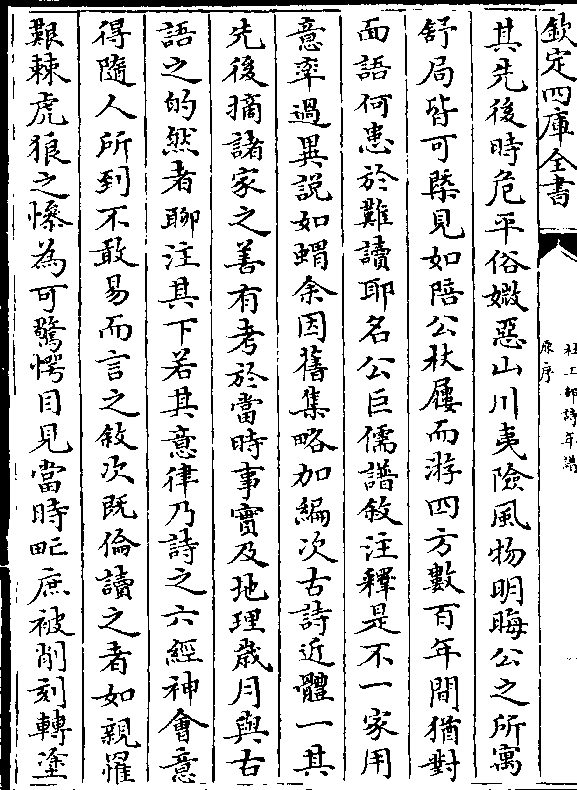 欽定四庫全書
杜工部詩年譜
原序
其先後時危平俗媺惡山川夷險風物明晦公之所寓
舒局皆可槩見如陪公杖屨而游四方數百年間猶對
面語何患於難讀耶名公巨儒譜敘注釋是不一家用
意率過異說如蝟余因舊集略加編次古詩近體一其
先後摘諸家之善有考於當時事實及地理歲月與古
語之的然者聊注其下若其意律乃詩之六經神會意
得隨人所到不敢易而言之敘次既倫讀之者如親罹
艱棘虎狼之慘為可驚愕目見當時甿庶被削刻轉塗